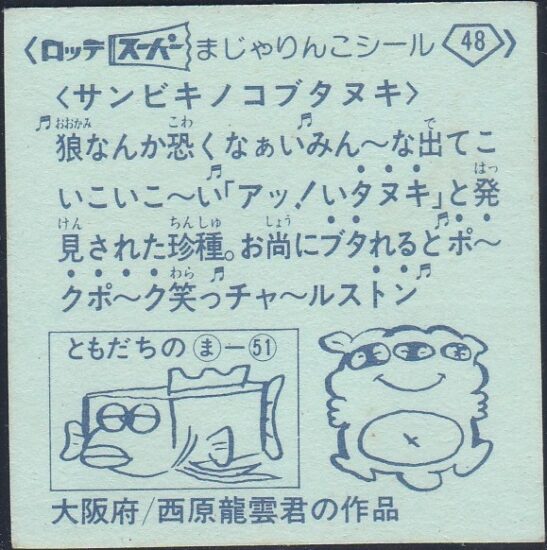 〈ロッテスーパーまじゃりんこシール 48〉
〈サンビキノコブタヌキ〉
♬狼なんか恐くなぁい♬みん〜な出てこ
いこいこ〜い♬「アッ!いタヌキ」と発
見された珍種。お尚にブタれると♬ポ〜
クポ〜ク笑っチャ〜ルストン♬
ともだちの ま—51
大阪府/西原龍雲君の作品